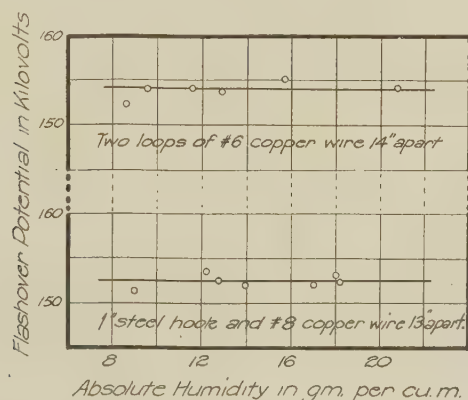 Flashover Potential in Kilovolts
160
150
Two loops of #6 copper wire 14" apart
160
150
1" steel hook and #8 copper wire 13" apart.
8 12 16 20
Absolute Humidity in gm. per cu. m.